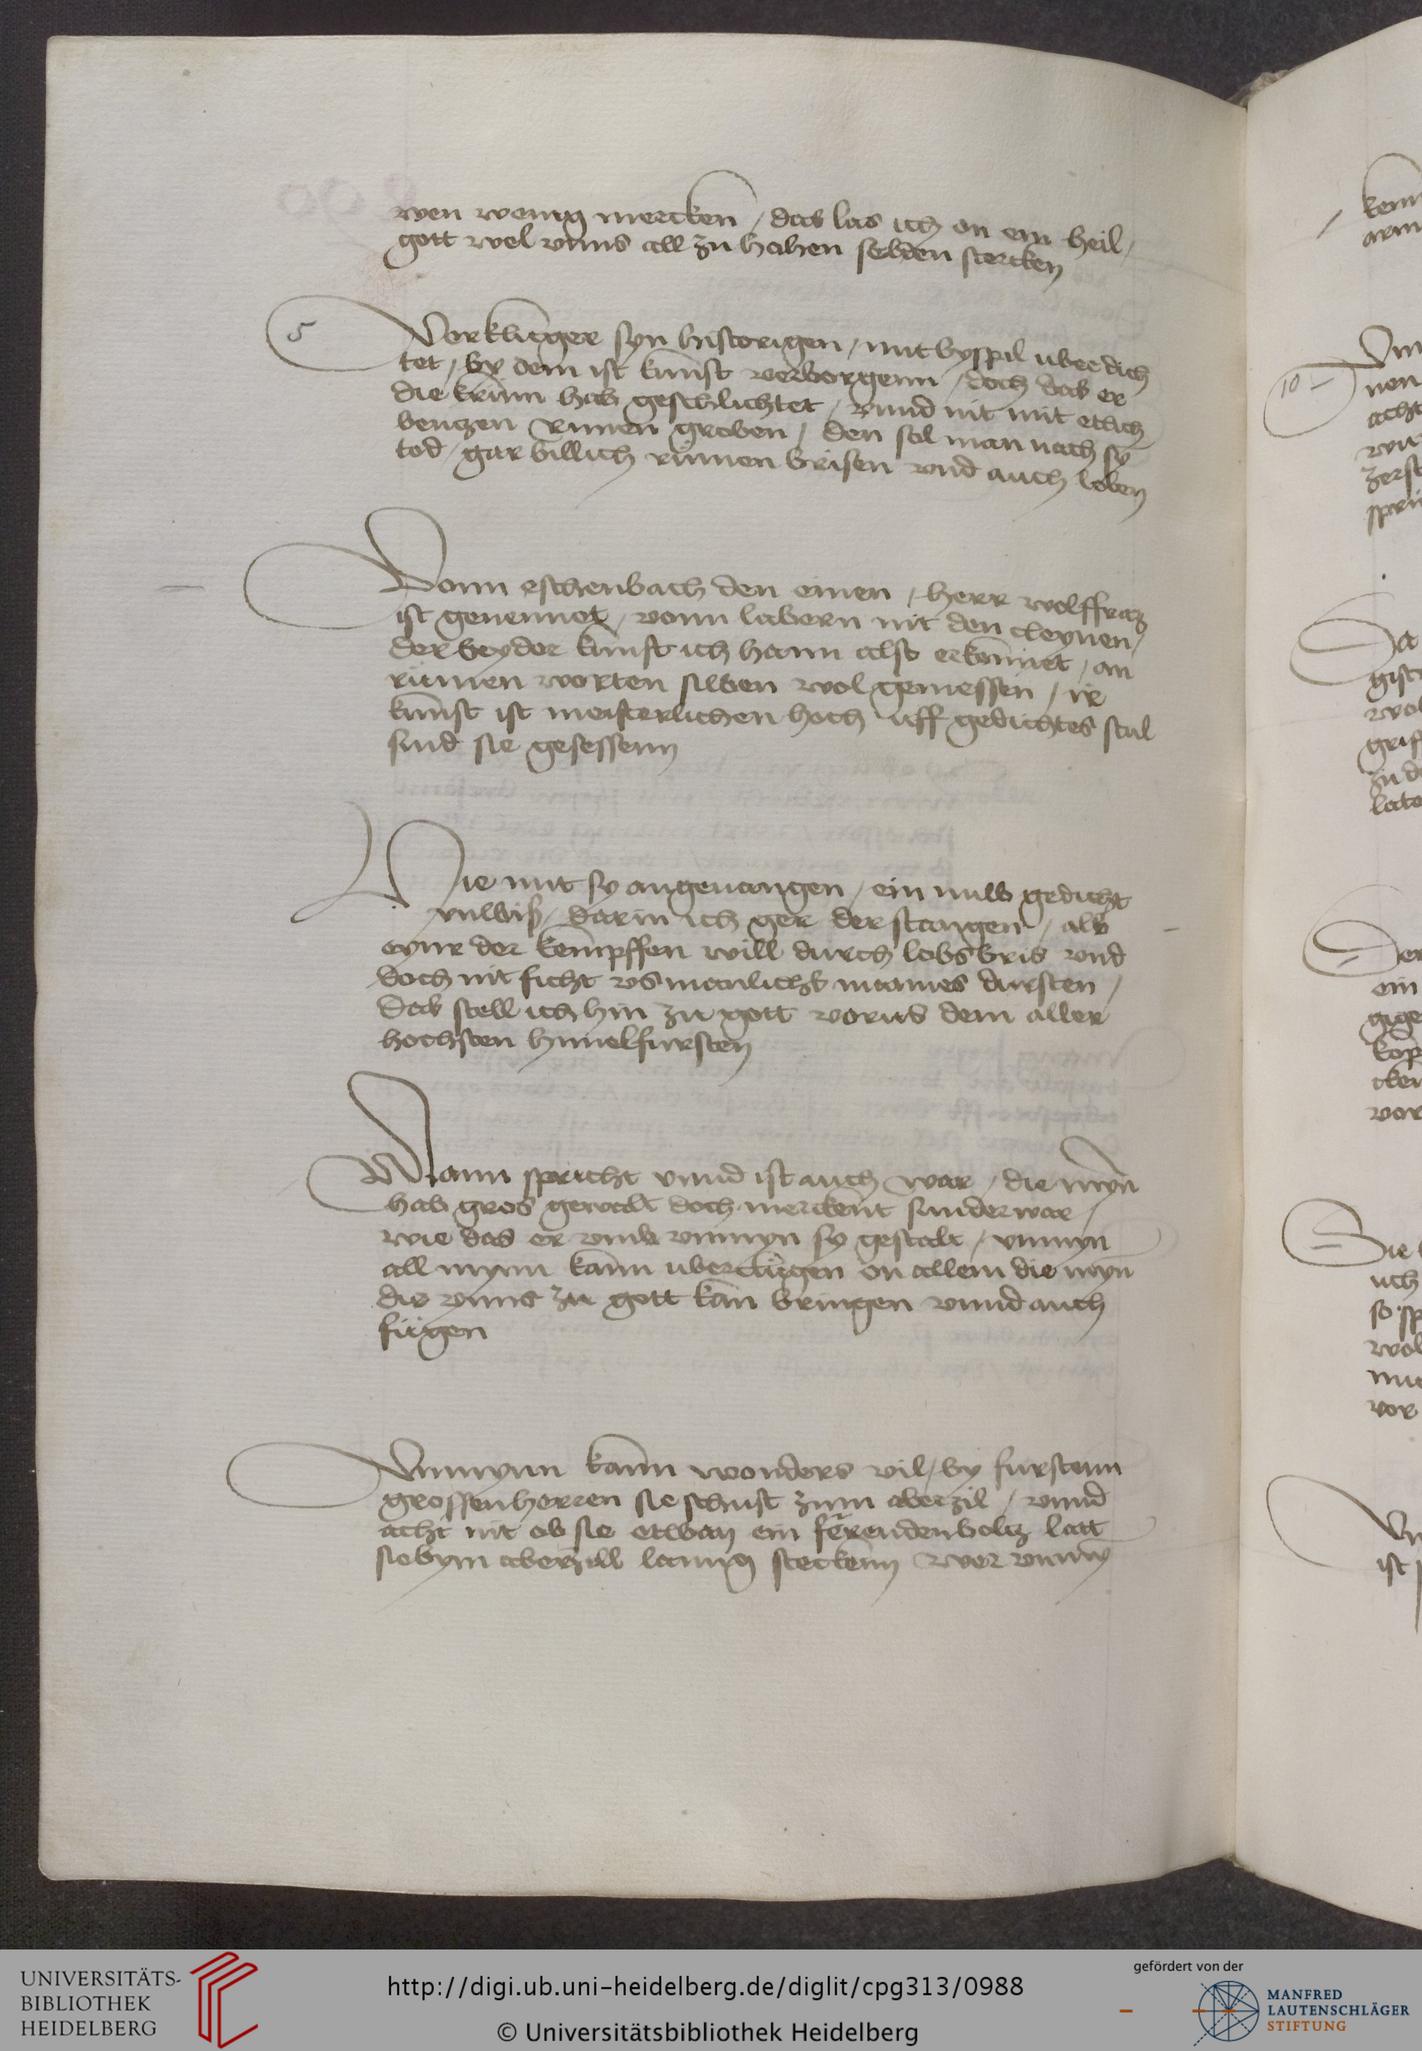 wen wenig mercken / das las ich an ein heil /
gott wel vnns all zu hahen selden stercken
5
Vorklinger syn historigen / mit byspil uberdich
tet / by dem ist kunst verborgenn / doch das er
die krum hab geschlichtet / vnnd nit mit etlich
benzen rimen groben / den sol man nach sy
tod / gar billich rümen brisen vnd auch loben
Vonn eschenbach den einen / herr wolffratz
ist genennet / vonn labern nit den cleynen /
der beyder kunst ich hann alst erkennet / an
rümen worten silben wol gemessen / ir
kunst ist meisterlichen hoch uff gedichtes stul
sind sie gesessenn
Hie mit sy angeuangen / ein nuw gedicht
vnwiß / darin ich ger der stangen / als
eynr der kempffen will durch lobs bris vnd
doch nit ficht vs manlichs mannes dursten /
Das stell ich hin zu gott vorus dem aller
hochsten himelfursten
Mann spricht vnnd ist auch war / die myn
hab gros gewalt doch merckent sunderwar /
wie das er vnd vnmyn sy gestalt / vnmyn
all mynn kann ubertügen on allein die myn
die vnns zu gott kan bringen vnnd auch
fügen
Vnmynn kann wonders vil / by furstenn
grossenherren sie schust zum aberzil / vnnd
acht nit ob sie etwan ein ferendenboltz latt
sie bym aberzill lannig steckenn Wer vnmy
10
UNIVERSITÄTS-
BIBLIOTHEK
HEIDELBERG
http://digi.ub.uni-heidelberg.de/diglit/cpg313/0988
© Universitätsbibliothek Heidelberg
gefördert von der
MANFRED
LAUTENSCHLÄGER
STIFTUNG